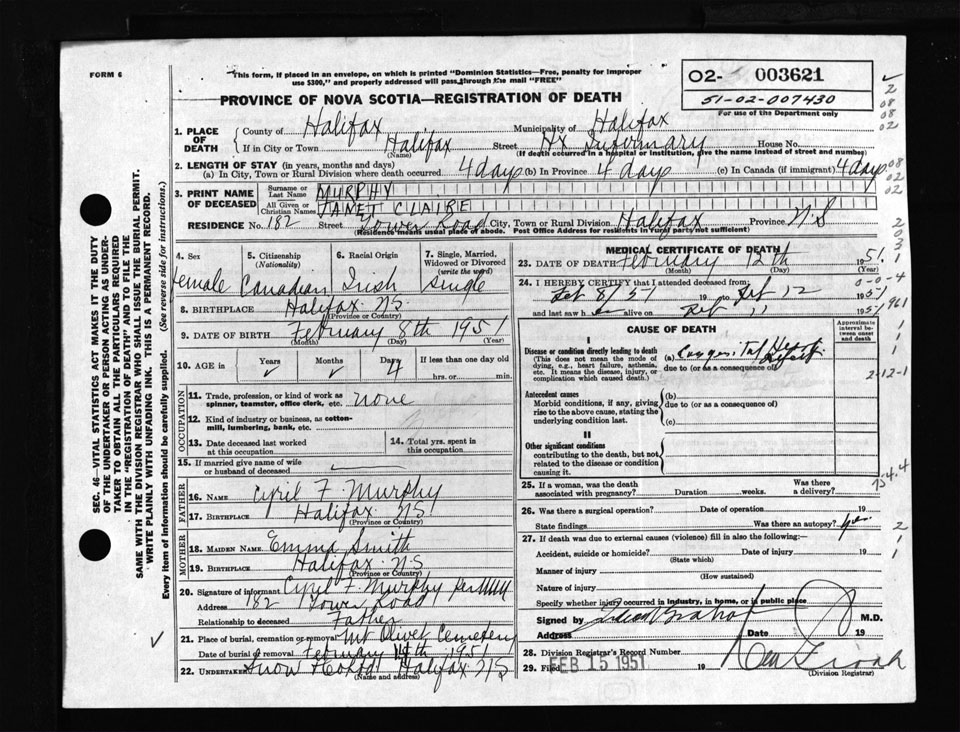 FORM 6
This form, if placed in an envelope, on which is printed "Dominion Statistics—Free, penalty for improper
use $300," and properly addressed will pass through the mail "FREE"
PROVINCE OF NOVA SCOTIA—REGISTRATION OF DEATH
O2- 003621
51-02-007430
For use of the Department only
1. PLACE OF DEATH
County of Halifax Municipality of Halifax
If in City or Town Halifax Street Hx Infirmary House No.
(Name) (If death occurred in a hospital or institution, give the name instead of street and number)
2. LENGTH OF STAY (in years, months and days)
(a) In City, Town or Rural Division where death occurred 4 days (b) In Province 4 days (c) In Canada (if immigrant) 4 days
3. PRINT NAME OF DECEASED
Surname or Last Name MURPHY
All Given or Christian Names JANET CLAIRE
RESIDENCE No. 182 Street Tower Road City, Town or Rural Division Halifax Province N.S
(Residence means usual place of abode. Post Office Address for residents in rural parts not sufficient)
4. Sex female
5. Citizenship (Nationality) Canadian
6. Racial Origin Irish
7. Single, Married, Widowed or Divorced (write the word) Single
8. BIRTHPLACE Halifax N.S.
(Province or Country)
9. DATE OF BIRTH February 8th 1951
(Month) (Day) (Year)
10. AGE in Years ✓ Months ✓ Days 4 If less than one day old
hrs. or min.
OCCUPATION
11. Trade, profession, or kind of work as spinner, teamster, office clerk, etc. none
12. Kind of industry or business, as cotton-mill, lumbering, bank, etc.
13. Date deceased last worked at this occupation
14. Total yrs. spent in this occupation
15. If married give name of wife or husband of deceased
FATHER
16. NAME Cyril F. Murphy
17. BIRTHPLACE Halifax N.S
(Province or Country)
MOTHER
18. MAIDEN NAME Emma Smith
19. BIRTHPLACE Halifax N.S
(Province or Country)
20. Signature of informant Cyril F. Murphy per
Address 182 Tower Road
Relationship to deceased Father
21. Place of burial, cremation or removal Mt Olivet Cemetery
Date of burial or removal February 14th 1951
22. UNDERTAKER Snow Halifax N.S
(Name and address)
MEDICAL CERTIFICATE OF DEATH
23. DATE OF DEATH February 12th 1951
(Month) (Day) (Year)
24. I HEREBY CERTIFY that I attended deceased from:
Feb 8/51 19 to Feb 12 1951
and last saw h er alive on Feb 11 1951
CAUSE OF DEATH
Approximate interval between onset and death
I
Disease or condition directly leading to death
(This does not mean the mode of dying, e.g., heart failure, asthenia, etc. It means the disease, injury, or complication which caused death.)
(a) Congenital Heart Defect
due to (or as a consequence of)
Antecedent causes
Morbid conditions, if any, giving rise to the above cause, stating the underlying condition last.
(b)
due to (or as a consequence of)
(c)
II
Other significant conditions
contributing to the death, but not related to the disease or condition causing it.
25. If a woman, was the death associated with pregnancy? Duration weeks. Was there a delivery?
26. Was there a surgical operation? Date of operation 19
State findings Was there an autopsy? yes
27. If death was due to external causes (violence) fill in also the following:—
Accident, suicide or homicide? Date of injury 19
(State which)
Manner of injury
(How sustained)
Nature of injury
Specify whether injury occurred in industry, in home, or in public place
Signed by M.D.
Address Date 19
28. Division Registrar's Record Number
29. Filed FEB 15 1951 19
(Division Registrar)
SEC. 46—VITAL STATISTICS ACT MAKES IT THE DUTY
OF THE UNDERTAKER OR PERSON ACTING AS UNDER-
TAKER TO OBTAIN ALL THE PARTICULARS REQUIRED
IN THE "REGISTRATION OF DEATH" AND TO FILE THE
SAME WITH THE DIVISION REGISTRAR WHO SHALL ISSUE THE BURIAL PERMIT.
WRITE PLAINLY WITH UNFADING INK. THIS IS A PERMANENT RECORD.
Every item of information should be carefully supplied. (See reverse side for instructions.)
✓
2
08
08
02
08
02
02
2
0
3
1
0-0-4
961
1
1
1
2-12-1
754.4
2
1
1